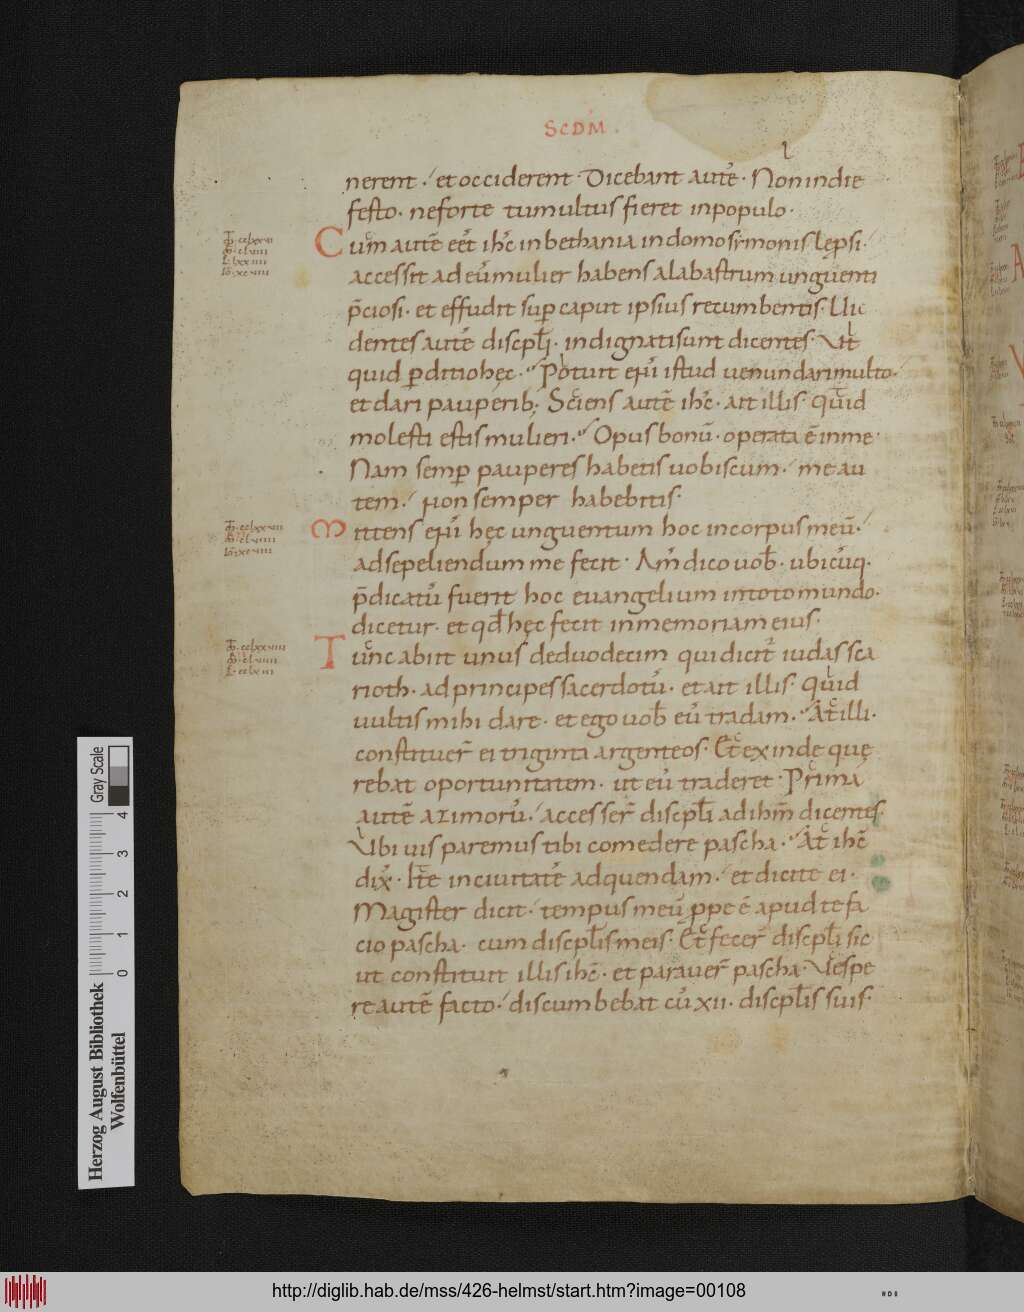 SCDM.
nerent. et occiderent. Dicebant autē. Non indie
festo. neforte tumultus fieret inpopulo.
Cum autē eēt ihc̄ in bethania in domo simonis lęprsi.
accessit ad eū mulier habens alabastrum unguenti
p̄ciosi. et effudit sup caput ipsius recumbentis. Ui
dentes autē discpłi. indignati sunt dicentes. Ut
quid pditio hęc. Potuit enī istud uenundari multo.
et dari pauperib; Sciens autē ihc̄. ait illis. quid
molesti estis mulieri. Opus bonū. operata ē inme.
Nam semp pauperes habetis uobiscum. me au
tem. non semper habebitis.
Mittens enī hęc unguentum hoc incorpus meū.
ad sepeliendum me fecit. Am̄ dico uob. ubicūq.
p̄dicatū fuerit hoc euangelium intoto mundo.
dicetur. et qđ hęc fecit in memoriam eius.
Tunc abiit unus deduodecim qui dicit iudas sca
rioth. ad principes sacerdotū. et ait illis. quid
uultis mihi dare. et ego uob eū tradam. At illi.
constituer̄ ei triginta argenteos. Et exinde quę
rebat oportunitatem. ut eū traderet. Prima
autē azimorū. accesser̄ discpłi ad ihm̄ dicentes.
Ubi uis paremus tibi comedere pascha. At ihc̄
dix̄. Ite in ciuitatē adquendam. et dicite ei.
Magister dicit. tempus meū ppe ē apud te fa
cio pascha. cum discpłis meis. Et fecer̄ discpłi sic
ut constituit illis ihc̄. et parauer̄ pascha. Uespe
re autē facto. discumbebat cū xii. discpłis suis.
Herzog August Bibliothek
Wolfenbüttel
0 1 2 3 4
Gray Scale
http://diglib.hab.de/mss/426-helmst/start.htm?image=00108